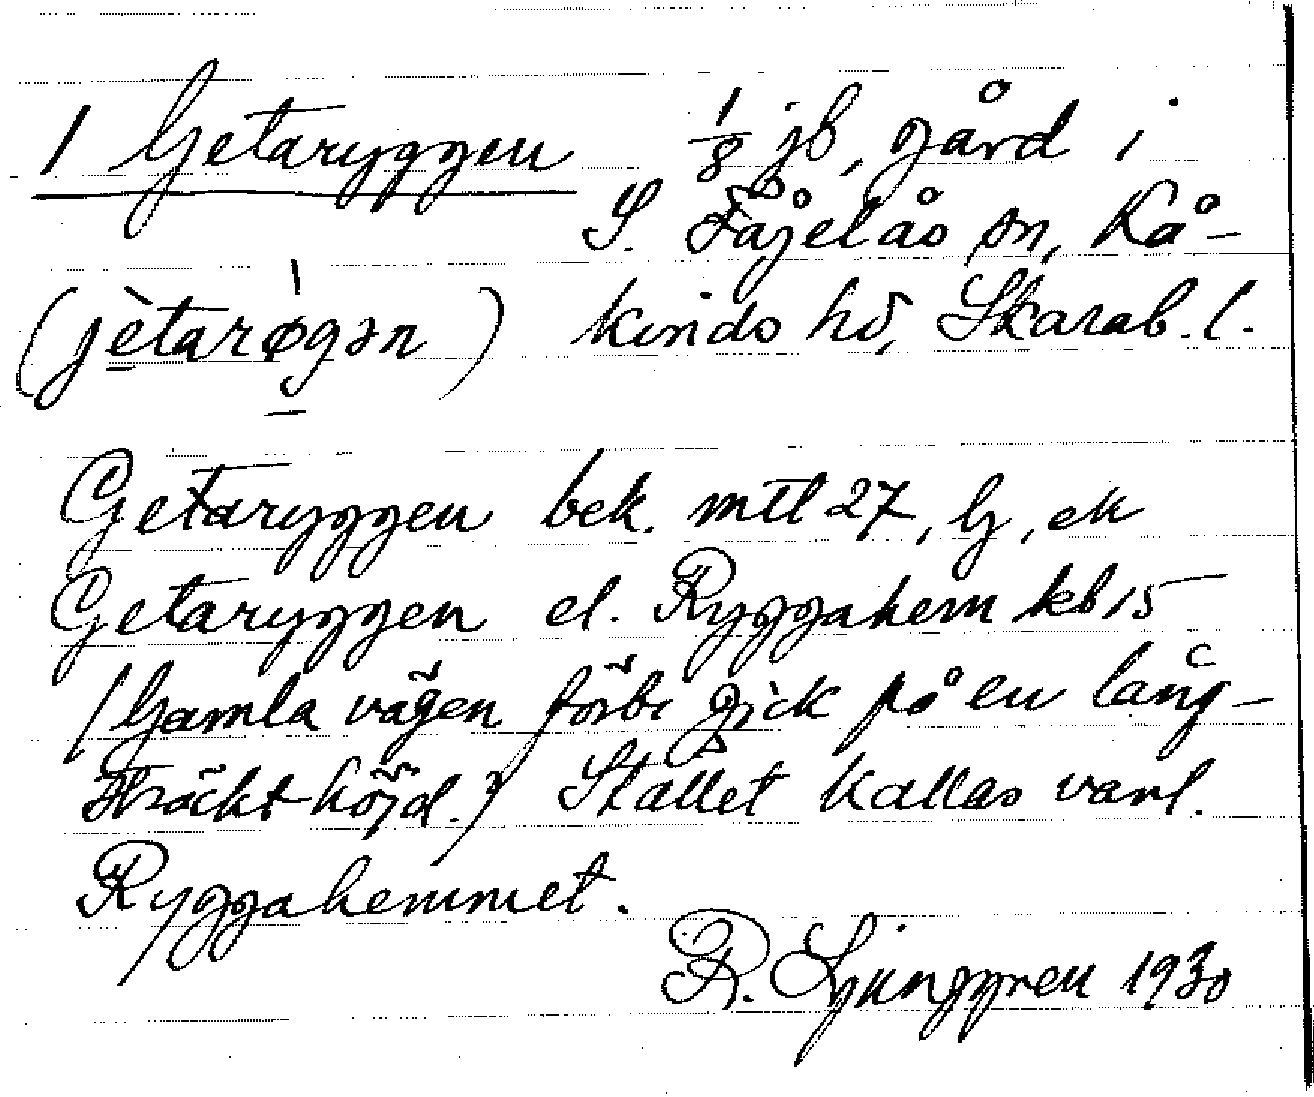 1 Getaryggen 1/8 jb, gård i
S. Fågelås sn, Kå-
(jètarøgən) kinds hd, Skarab. l.
Getaryggen bek. mtl 27, lj, ek
Getaryggen el. Ryggahem kb 15
(Gamla vägen förbi gick på en lång-
sträckt höjd.) Stället kallas vanl.
Ryggahemmet.
R. Ljunggren 1930